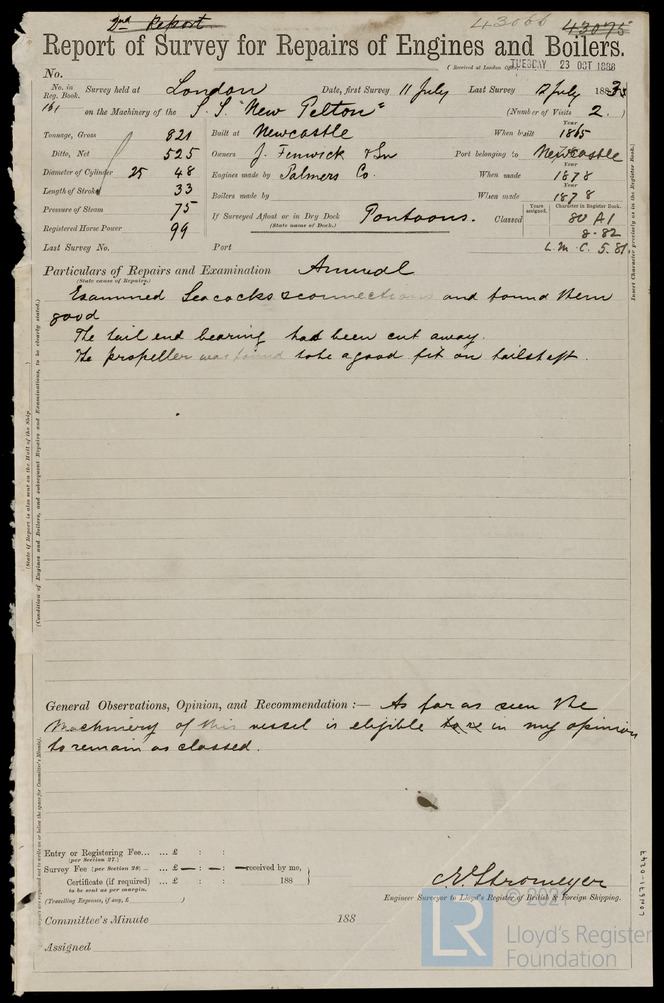 2nd Report
43066 43075
Report of Survey for Repairs of Engines and Boilers.
(Received at London Office TUESDAY 23 OCT 1883
No.
No. in Reg. Book. Survey held at London Date, first Survey 11 July Last Survey 12 July 1883
161 on the Machinery of the S.S. "New Pelton" (Number of Visits 2.)
Tonnage, Gross 821 Built at Newcastle When built Year 1865
Ditto, Net 525 Owners J. Fenwick & Son Port belonging to Newcastle
Diameter of Cylinder 25 48 Engines made by Palmers Co. When made Year 1878
Length of Stroke 33 Boilers made by When made Year 1878
Pressure of Steam 75 If Surveyed Afloat or in Dry Dock Pontoons. Classed Years assigned. Character in Register Book. 80 A1
Registered Horse Power 99 (State name of Dock.) 8.82
Last Survey No. Port L.M.C. 5.81.
Particulars of Repairs and Examination Annual
(State cause of Repairs.)
Examined Seacocks & connections and found them
good
The tail end bearing had been cut away.
The propeller was found to be a good fit on tailshaft.
General Observations, Opinion, and Recommendation :— As far as seen the
Machinery of this vessel is eligible in my opinion
to remain as classed.
Entry or Registering Fee... ... £ : :
(per Section 27.)
Survey Fee (per Section 28) ... ... £ — : — : — received by me,
Certificate (if required) ... £ : : 188
to be sent as per margin.
(Travelling Expenses, if any, £ )
C.E. Stromeyer
Engineer Surveyor to Lloyd's Register of British & Foreign Shipping.
Committee's Minute 188
Assigned
Insert Character precisely as in the Register Book.)
(State if Report is also sent on the Hull of the Ship
(Condition of Engines and Boilers, and subsequent Repairs and Examinations, to be clearly stated.)
LON571-0247
© 2021
LR
Lloyd's Register
Foundation